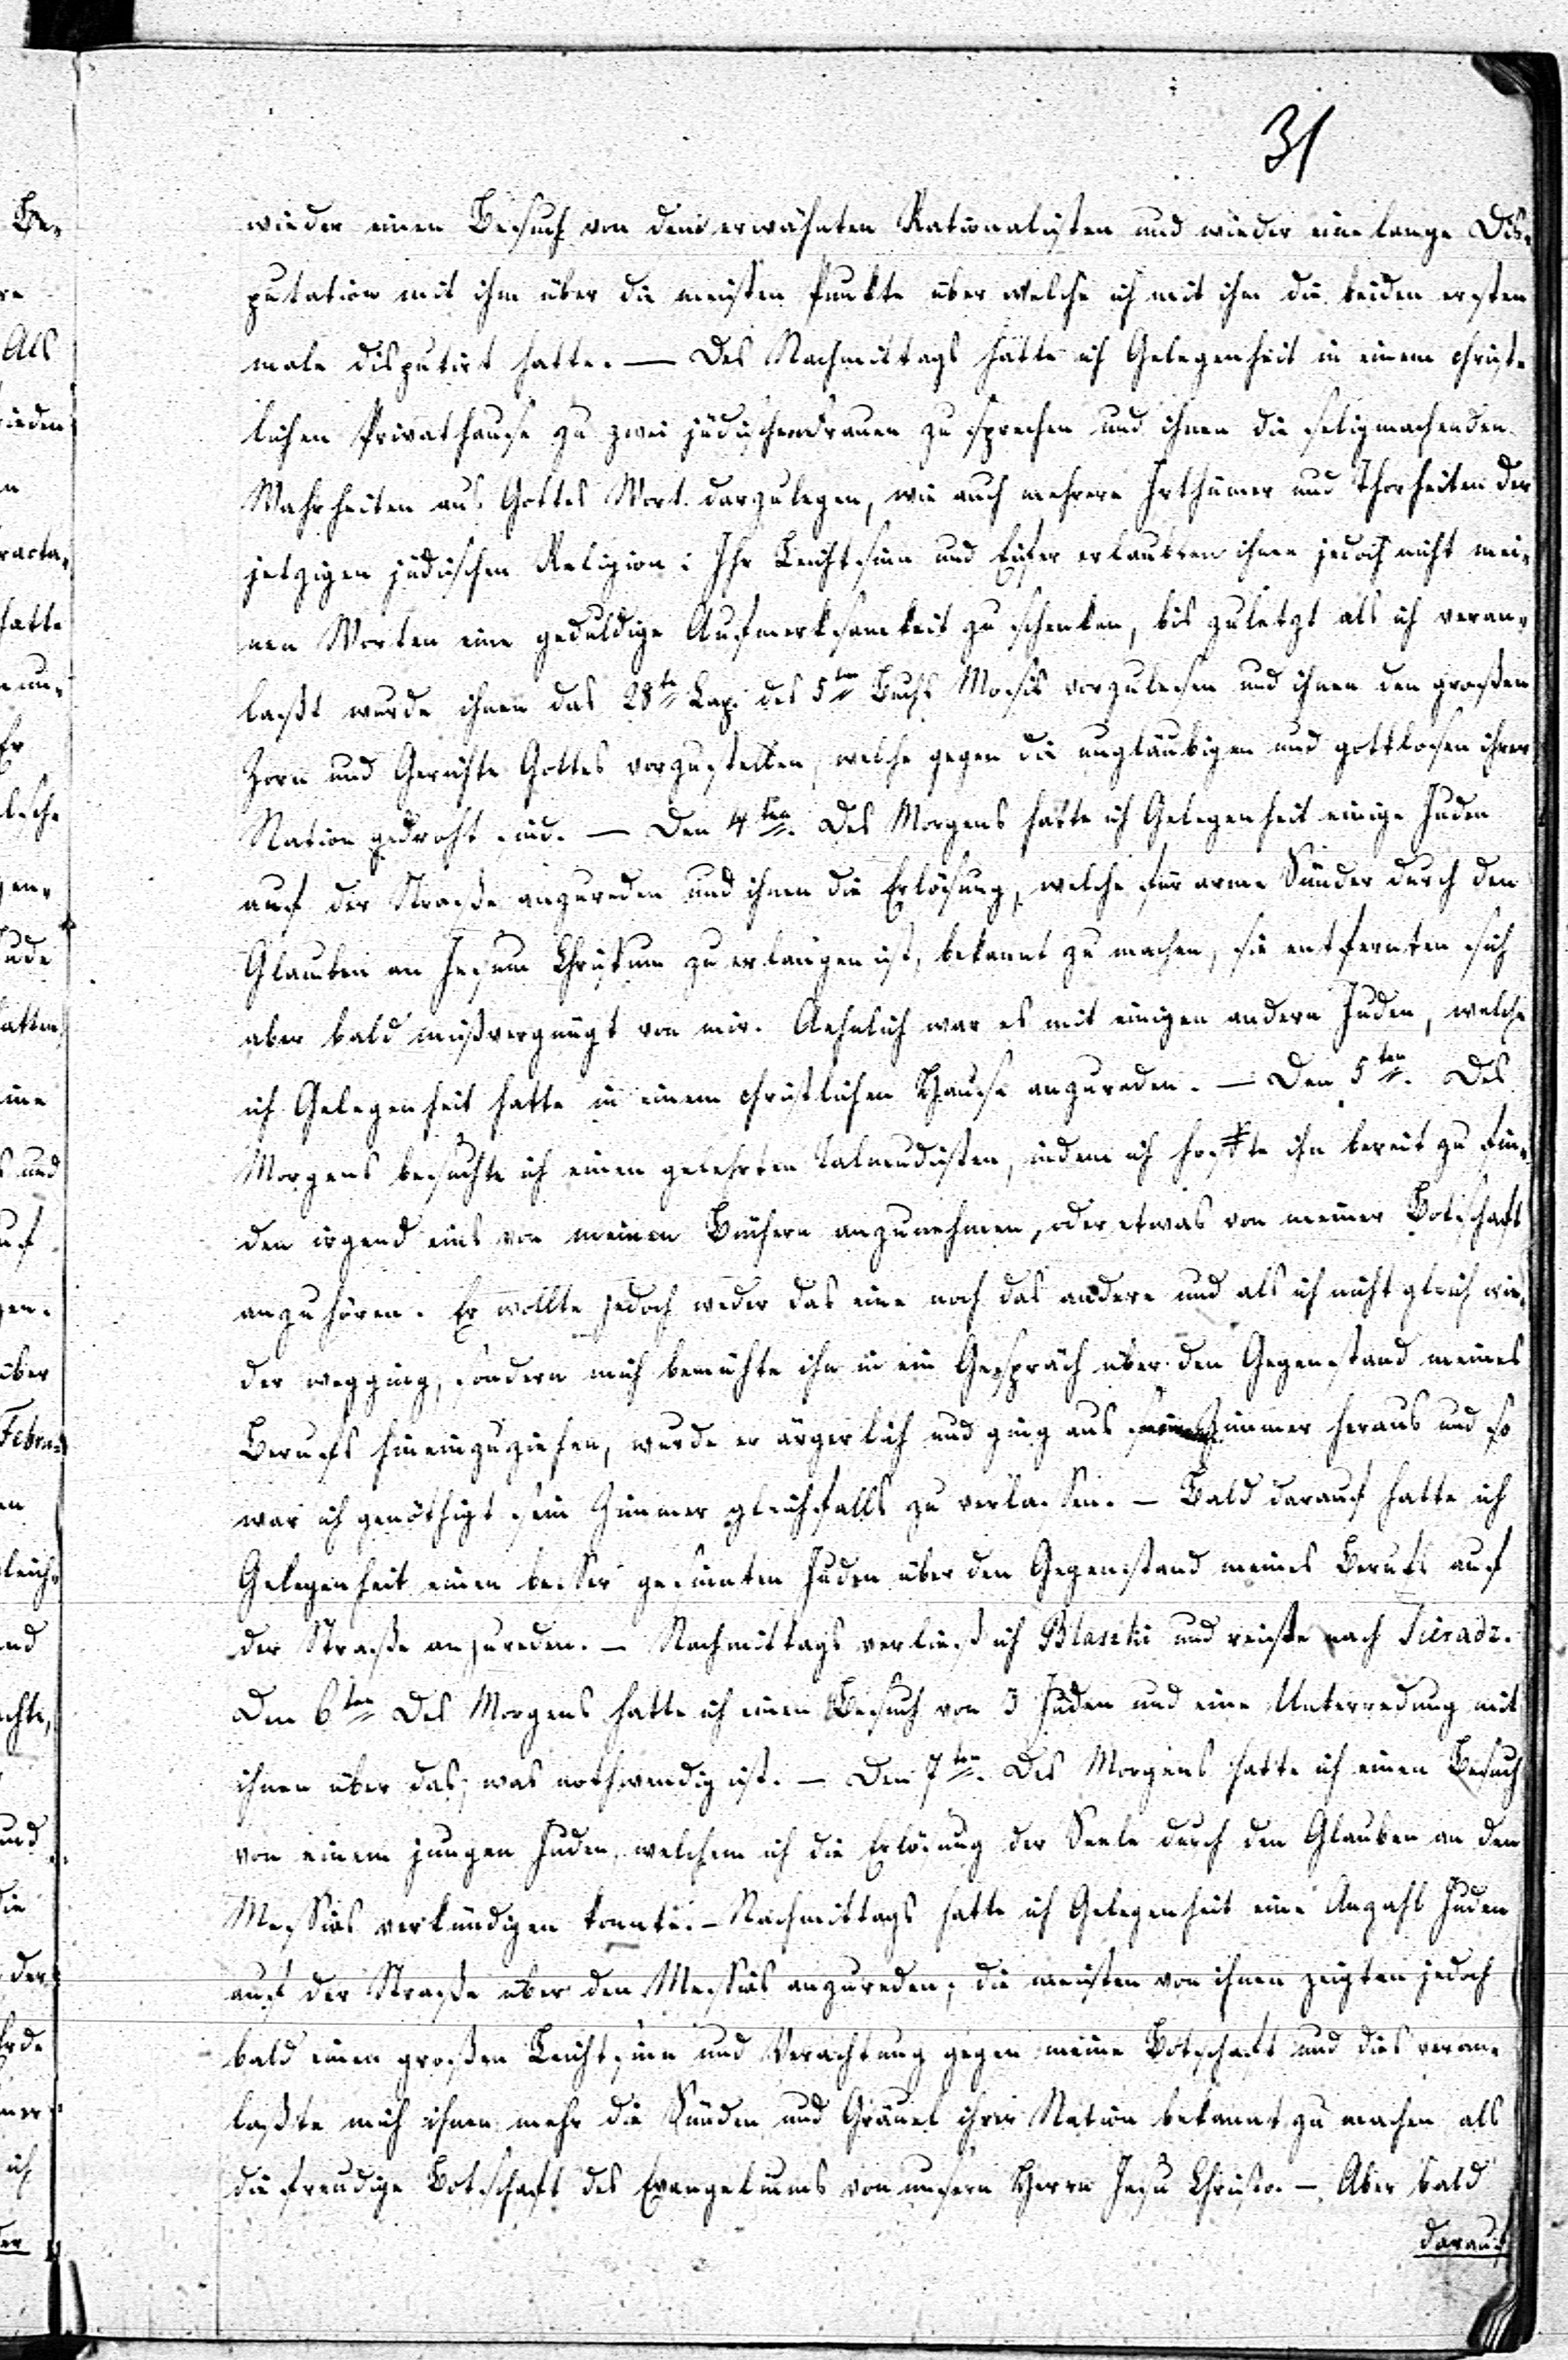 31
wieder einen Besuch von dem erwähnten Rationalisten und wieder eine lange Dis-
putation mit ihm über die meisten Punkte über welche ich mit ihm die beiden ersten
male disputirt hatte. — Des Nachmittags hatte ich Gelegenheit in einem christ-
lichen Privathause zu zwei jüdischen Frauen zu sprechen und ihnen die seligmachenden
Wahrheiten aus Gottes Wort darzulegen, wie auch mehrere Irthümer und Thorheiten der
jetzigen jüdischen Religion: Ihr Leichtsinn und Eifer erlaubten ihnen jedoch nicht mei-
nen Worten eine geduldige Aufmerksamkeit zu schenken, bis zuletzt als ich veran-
laßt wurde ihnen das 28te Cap. des 5ten Buchs Mosis vorzulesen und ihnen den großen
Zorn und Gerichte Gottes vorzustellen, welche gegen die ungläubigen und gottlosen ihrer
Nation gedroht sind. — Den 4ten. Des Morgens hatte ich Gelegenheit einige Juden
auf der Straße anzureden und ihnen die Erlösung, welche für arme Sünder durch den
Glauben an Jesum Christum zu erlangen ist, bekannt zu machen, sie entfernten sich
aber bald mißvergnügt von mir. Aehnlich war es mit einigen andern Juden, welche
ich Gelegenheit hatte in einem christlichen Hause anzureden. — Den 5ten. Des
Morgens besuchte ich einen gelehrten Talmudisten, indem ich hoffte ihn bereit zu fin-
den irgend eins von meinen Büchern anzunehmen, oder etwas von meiner Botschaft
anzuhören. Er wollte jedoch weder das eine noch das andere und als ich nicht gleich wie-
der wegging, sondern mich bemühte ihn in ein Gespräch über den Gegenstand meines
Berufs hineinzuziehen, wurde er ärgerlich und ging aus Zimmer heraus und so
war ich genöthigt sein Zimmer gleichfalls zu verlassen. — Bald darauf hatte ich
Gelegenheit einen besser gesinnten Juden über den Gegenstand meines Berufs auf
der Straße anzureden. — Nachmittags verließ ich Blaszki und reiste nach Sieradz.
Den 6ten Des Morgens hatte ich einen Besuch von 3 Juden und eine Unterredung mit
ihnen über das, was nothwendig ist. — Den 7ten. Des Morgens hatte ich einen Besuch
von einem jungen Juden, welchem ich die Erlösung der Seele durch den Glauben an den
Messias verkündigen konnte. — Nachmittags hatte ich Gelegenheit eine Anzahl Juden
auf der Straße über den Messias anzureden; die meisten von ihnen zeigten jedoch
bald einen großen Leichtsinn und Verachtung gegen meine Botschaft und dies veran-
laßte mich ihnen mehr die Sünden und Gräuel ihrer Nation bekannt zu machen als
die freudige Botschaft des Evangeliums von unserm Herrn Jesu Christo. — Aber bald
darauf